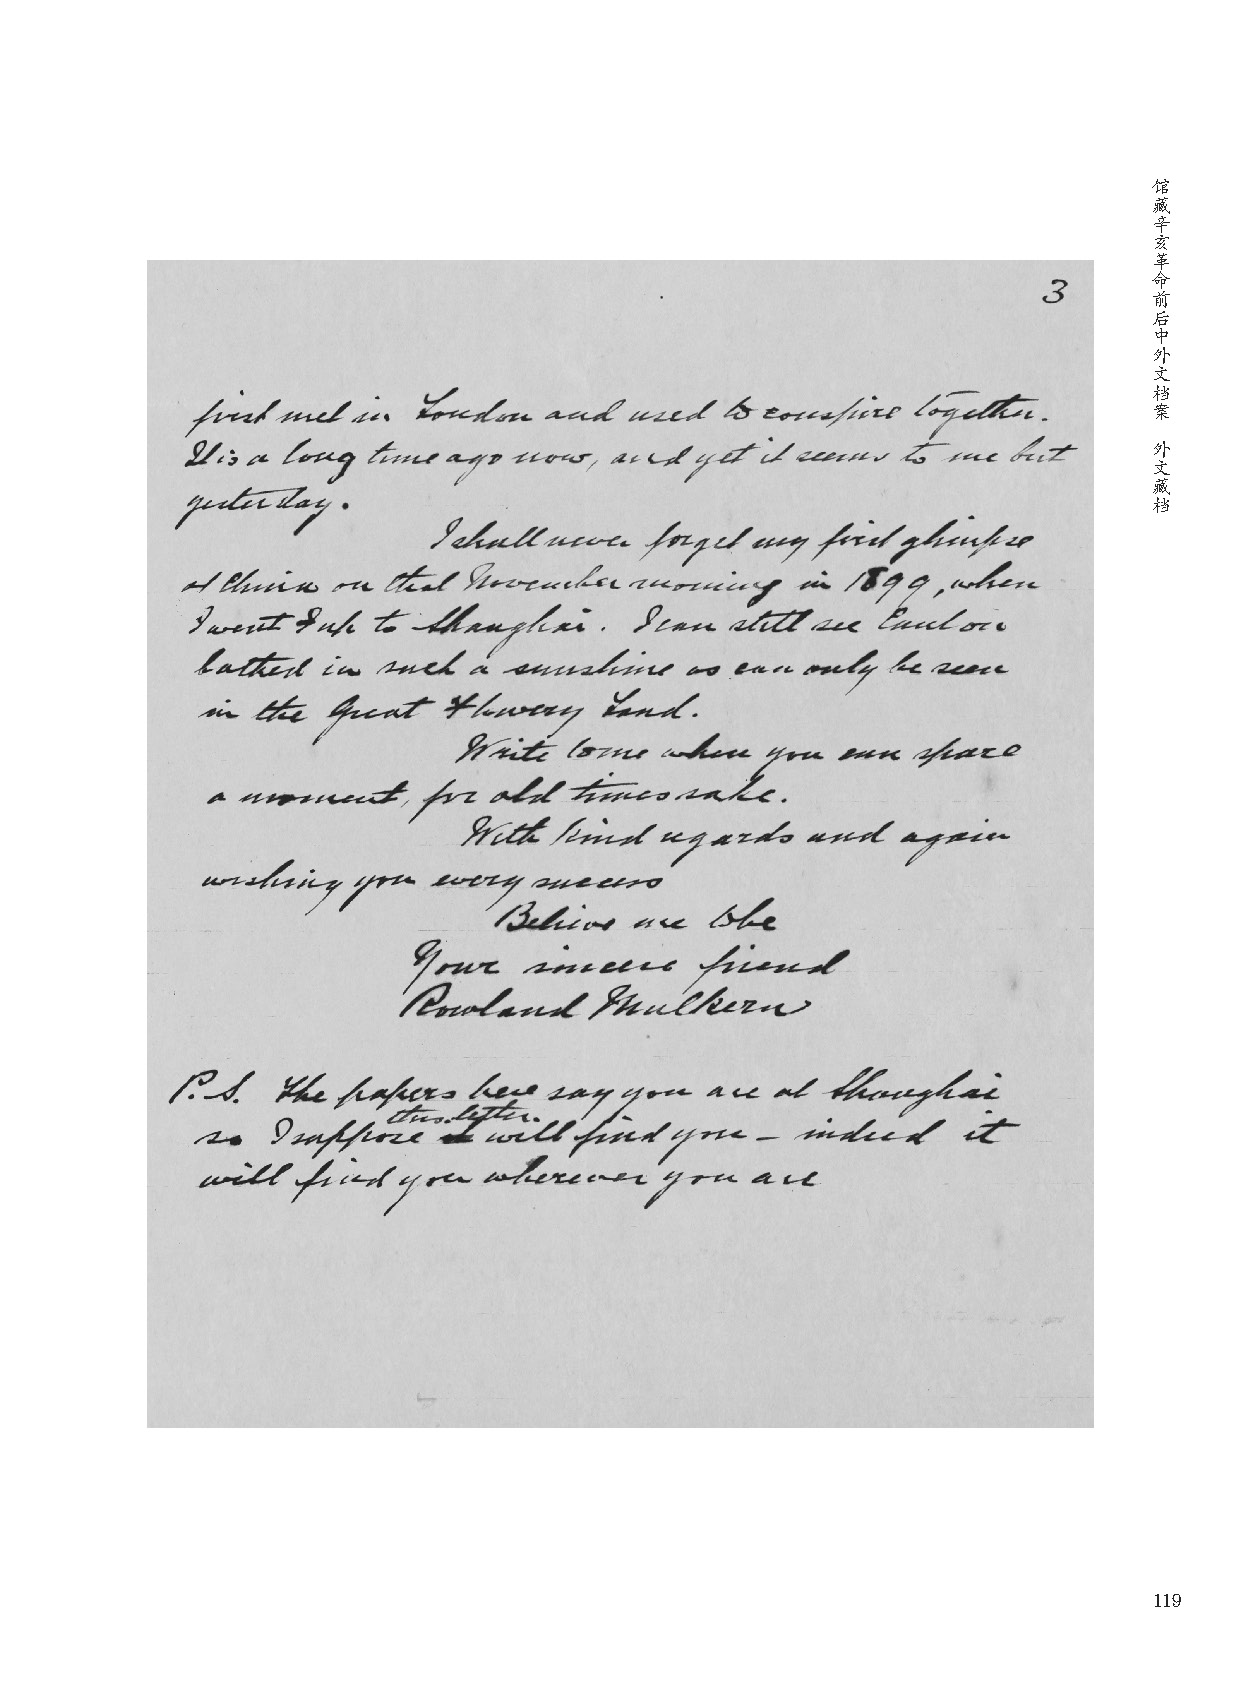 馆藏辛亥革命前后中外文档案 外文藏档
3
first met in London and used to conspire together.
It is a long time ago now, and yet it seems to me but
yesterday.
I shall never forget my first glimpse
of China on that November morning in 1899, when
I went up to Shanghai. I can still see Canton
bathed in such a sunshine as can only be seen
in the Great Flowery Land.
Write to me when you can spare
a moment, for old times sake.
With kind regards and again
wishing you every success
Believe me to be
Your sincere friend
Rowland Mulkern
P.S. The papers here say you are at Shanghai
this letter.
so I suppose will find you - indeed it
will find you wherever you are
119